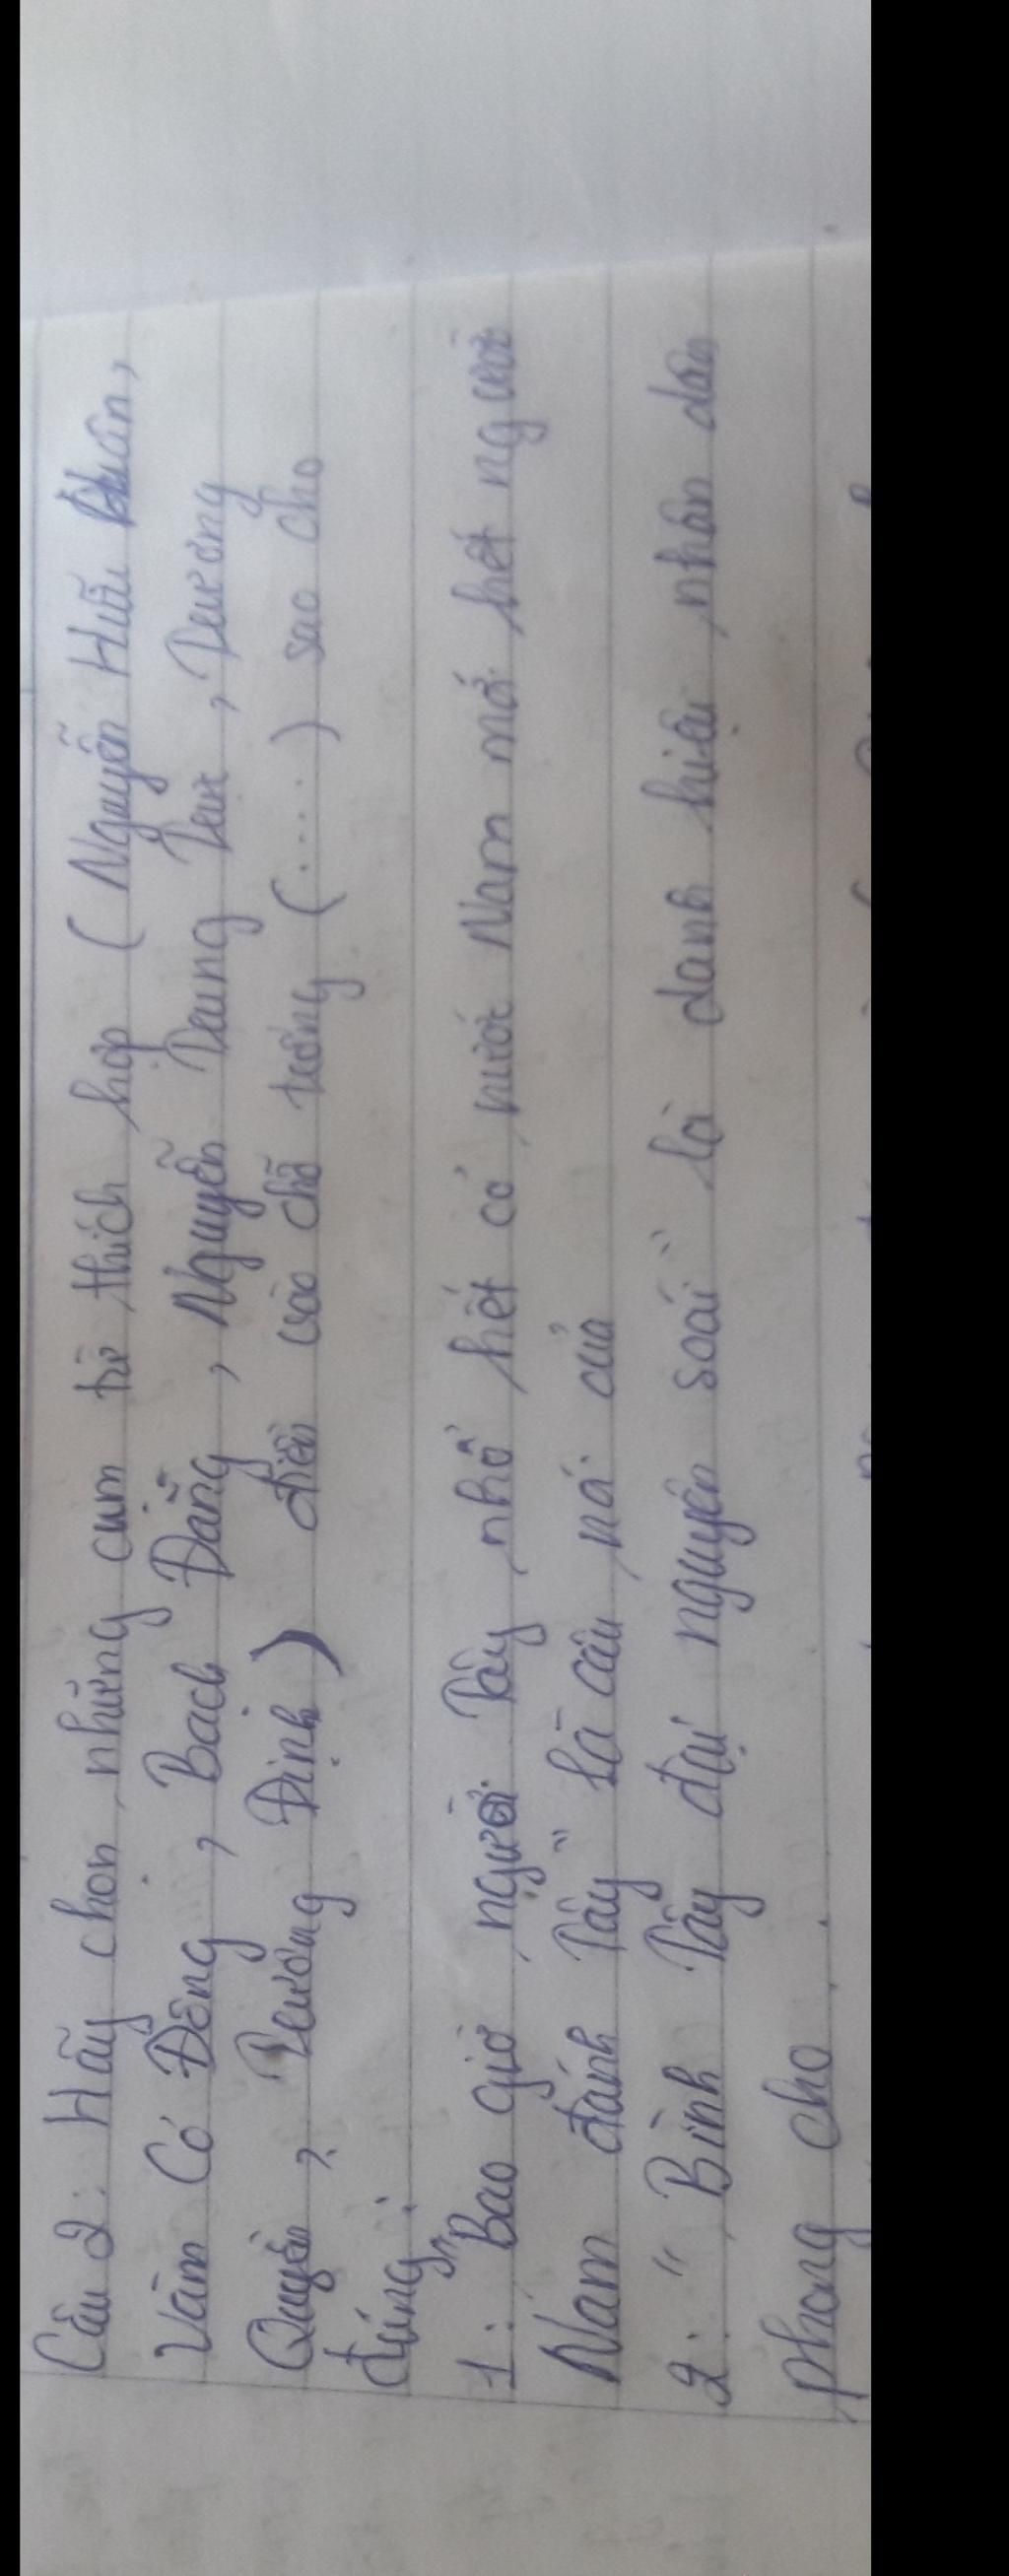 Câu 2: Hãy chọn những cụm từ thích hợp (Nguyễn Hữu Huân,
Vàm Cỏ Đông, Bạch Đằng, Nguyễn Trung Trực, Trương
Quyền, Trương Định) điền vào chỗ trống (....) sao cho
đúng:
1: "Bao giờ người Tây nhổ hết cỏ nước Nam mới hết người
Nam đánh Tây" là câu nói của
2: "Bình Tây đại nguyên soái" là danh hiệu nhân dân
phong cho.